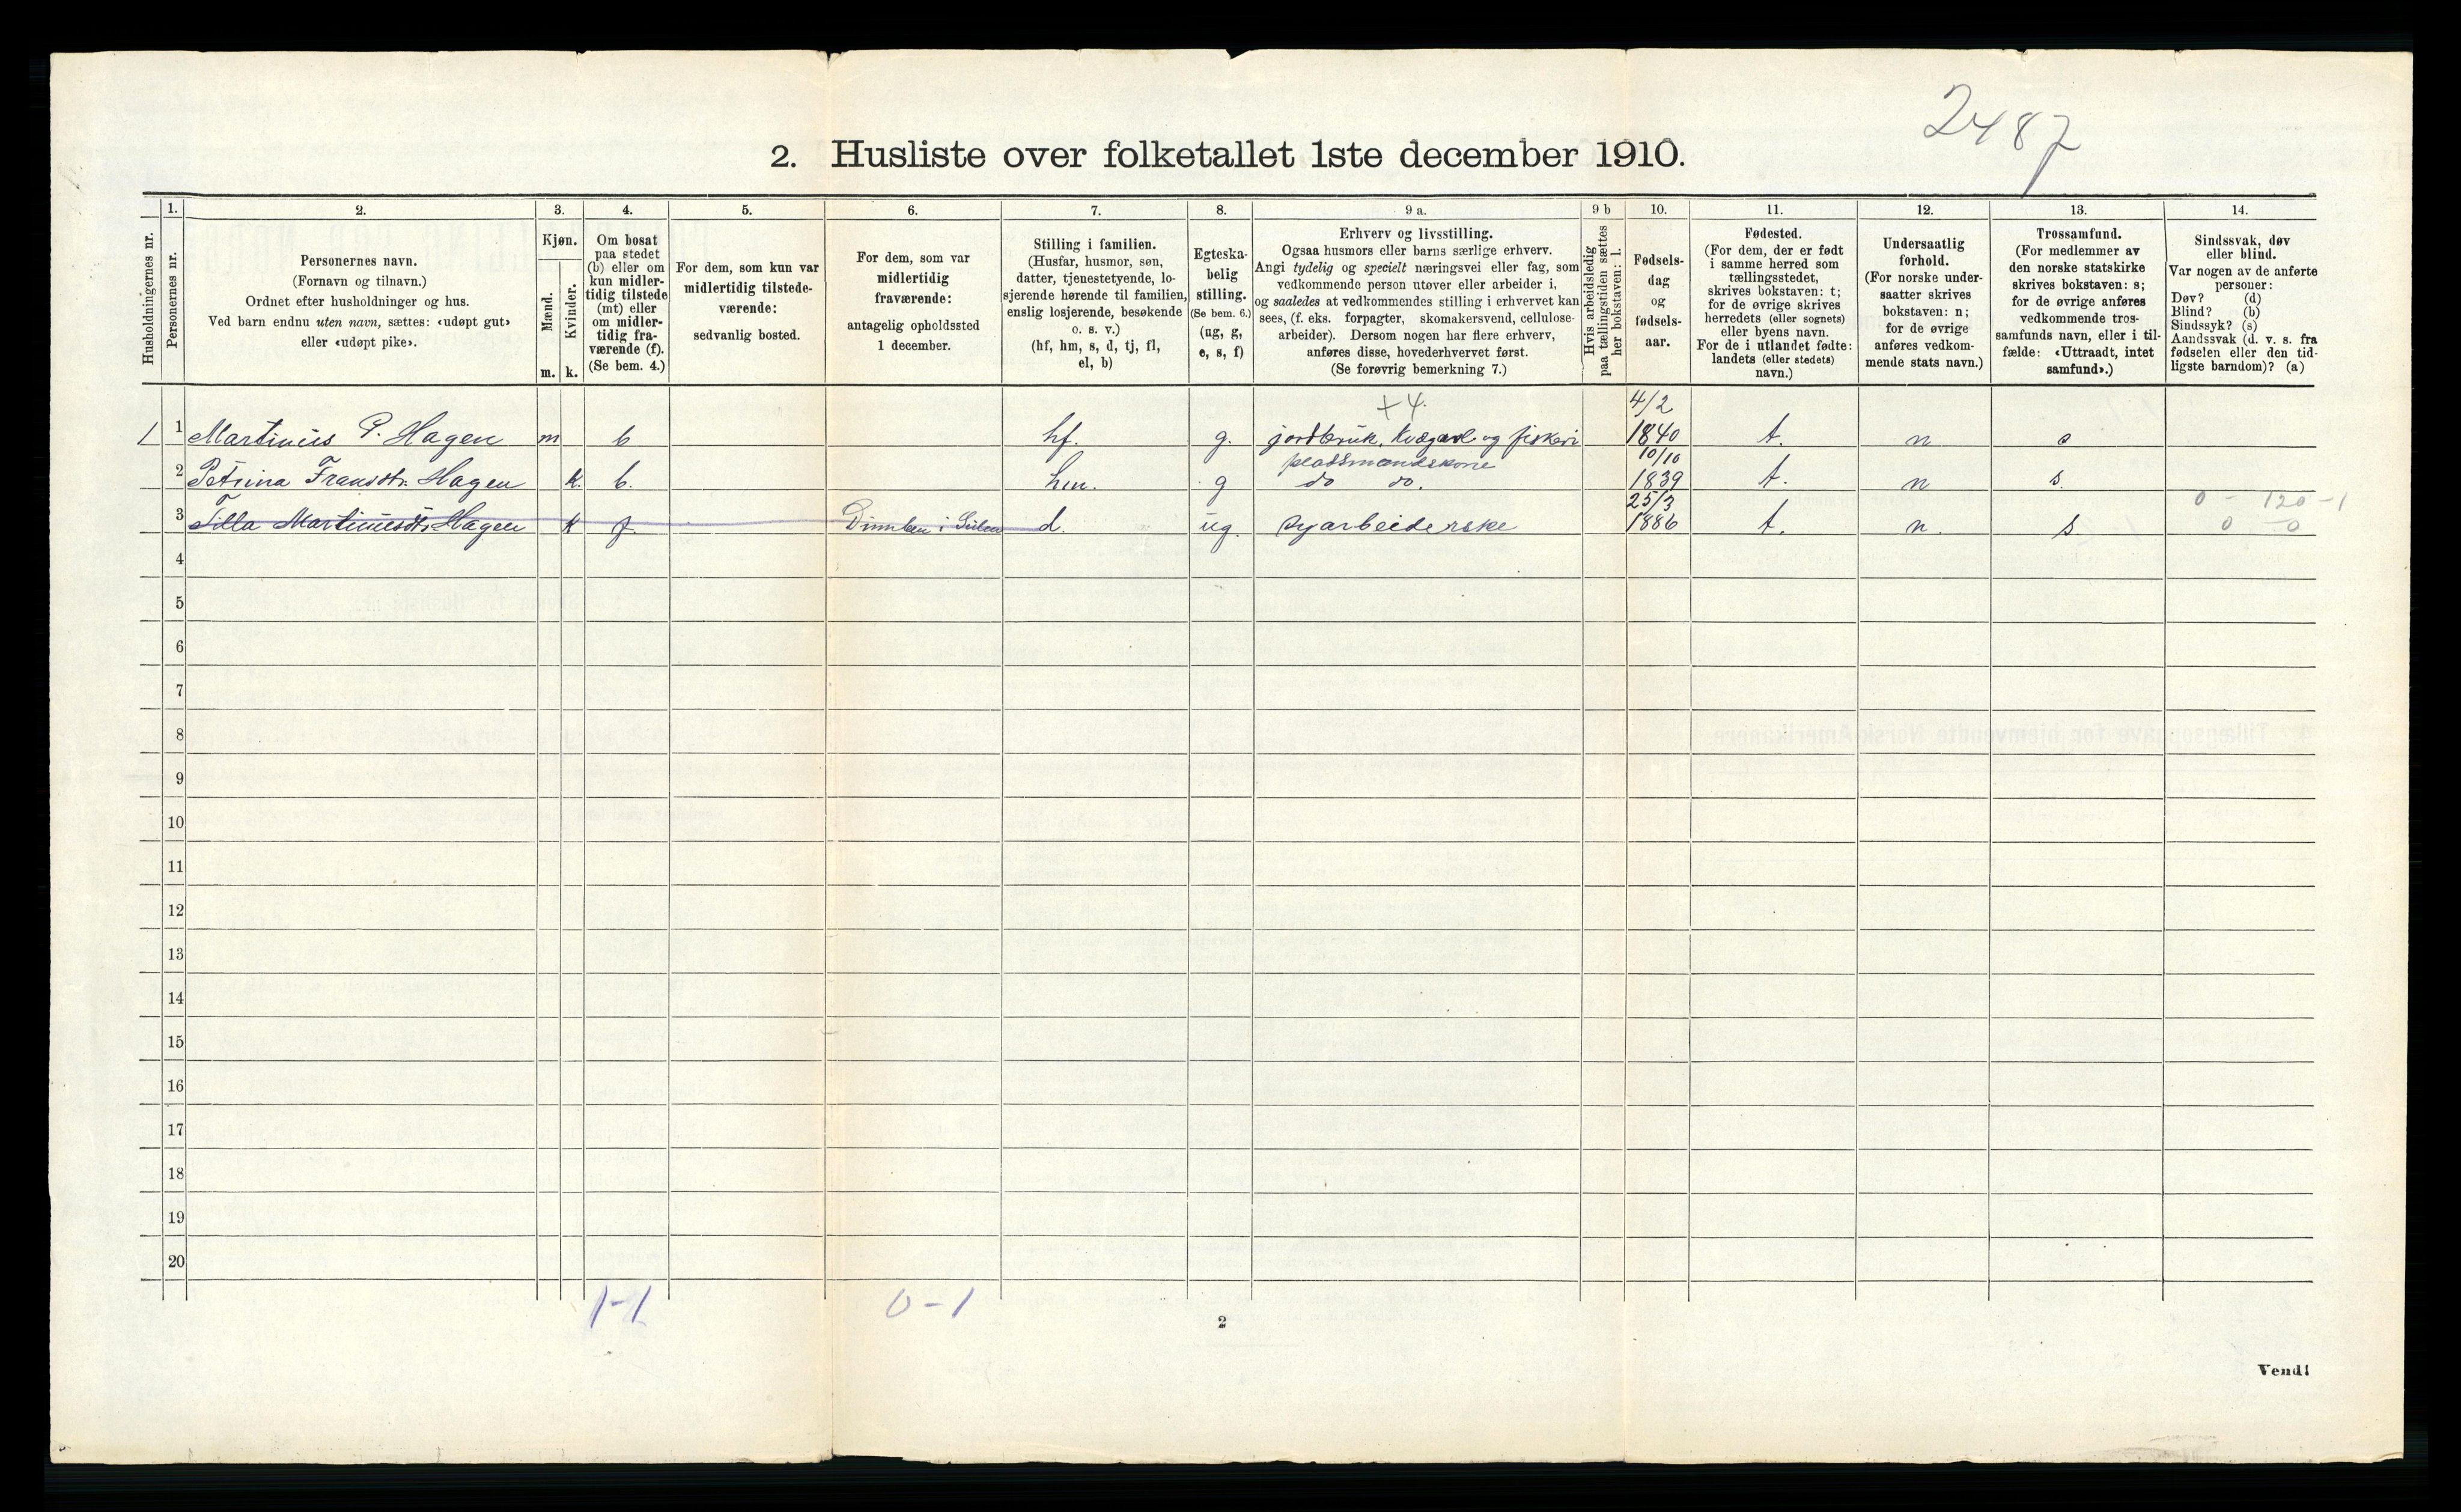 2487
2. Husliste over folketallet 1ste december 1910.
Husholdningernes nr.
1. Personernes nr.
2. Personernes navn.
(Fornavn og tilnavn.)
Ordnet efter husholdninger og hus.
Ved barn endnu uten navn, sættes: «udøpt gut»
eller «udøpt pike».
3. Kjøn.
Mænd. m.
Kvinder. k.
4. Om bosat
paa stedet
(b) eller om
kun midler-
tidig tilstede
(mt) eller
om midler-
tidig fra-
værende (f).
(Se bem. 4.)
5. For dem, som kun var
midlertidig tilstede-
værende:
sedvanlig bosted.
6. For dem, som var
midlertidig
fraværende:
antagelig opholdssted
1 december.
7. Stilling i familien.
(Husfar, husmor, søn,
datter, tjenestetyende, lo-
sjerende hørende til familien,
enslig losjerende, besøkende
o. s. v.)
(hf, hm, s, d, tj, fl,
el, b)
8. Egteska-
belig
stilling.
(Se bem. 6.)
(ug, g,
e, s, f)
9 a. Erhverv og livsstilling.
Ogsaa husmors eller barns særlige erhverv.
Angi tydelig og specielt næringsvei eller fag, som
vedkommende person utøver eller arbeider i,
og saaledes at vedkommendes stilling i erhvervet kan
sees, (f. eks. forpagter, skomakersvend, cellulose-
arbeider). Dersom nogen har flere erhverv,
anføres disse, hovederhvervet først.
(Se forøvrig bemerkning 7.)
9 b Hvis arbeidsledig
paa tællingstiden sættes
her bokstaven: l.
10. Fødsels-
dag
og
fødsels-
aar.
11. Fødested.
(For dem, der er født
i samme herred som
tællingsstedet,
skrives bokstaven: t;
for de øvrige skrives
herredets (eller sognets)
eller byens navn.
For de i utlandet fødte:
landets (eller stedets)
navn.)
12. Undersaatlig
forhold.
(For norske under-
saatter skrives
bokstaven: n;
for de øvrige
anføres vedkom-
mende stats navn.)
13. Trossamfund.
(For medlemmer av
den norske statskirke
skrives bokstaven: s;
for de øvrige anføres
vedkommende tros-
samfunds navn, eller i til-
fælde: «Uttraadt, intet
samfund».)
14. Sindssvak, døv
eller blind.
Var nogen av de anførte
personer:
Døv? (d)
Blind? (b)
Sindssyk? (s)
Aandssvak (d. v. s. fra
fødselen eller den tid-
ligste barndom)? (a)
+ 4. 4/2
1 1 Martinius P. Hagen m b hf. g. jordbruk, kvægavl og fiskeri 1840 t. n s
plassmandskone 10/10
2 Petrina Fransdtr. Hagen k. b. hm. g do do. 1839 t. n s.
25/3 0 - 120 - 1
3 Tilla Martiniusdtr. Hagen k f. i d. ug. syarbeiderske 1886 t. n. s. 0 - 0
4
5
6
7
8
9
10
11
12
13
14
15
16
17
18
19
20
1-1 0-1
2
Vend!